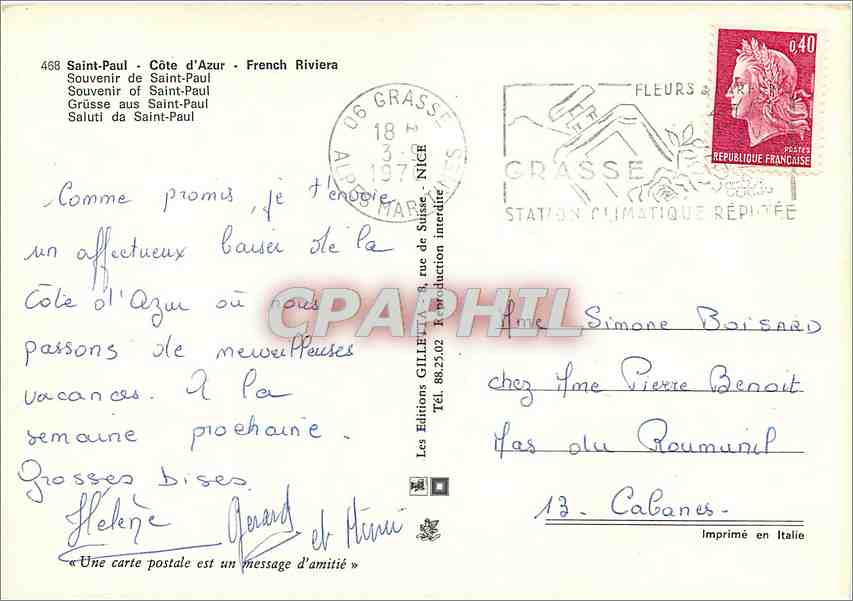 468 Saint-Paul - Côte d'Azur - French Riviera
Souvenir de Saint-Paul
Souvenir of Saint-Paul
Grüsse aus Saint-Paul
Saluti da Saint-Paul
06 GRASSE
18 H
3 -
197
ALPES MARITIMES
FLEURS &
GRASSE
STATION CLIMATIQUE RÉPUTÉE
0,40
POSTES
REPUBLIQUE FRANÇAISE
Comme promis, je t'envoie
un affectueux baiser de la
Côte d'Azur où nous
passons de merveilleuses
vacances. A la
semaine prochaine.
Grosses bises
Hélène Gerard et Mimi
« Une carte postale est un message d'amitié »
Les Editions GILLETTA - 8, rue de Suisse - NICE
Tél. 88.25.02 Reproduction interdite
CPAPHIL
Mme Simone BOISARD
chez Mme Pierre Benoit
Mas du Roumanil
13 - Cabanes -
Imprimé en Italie